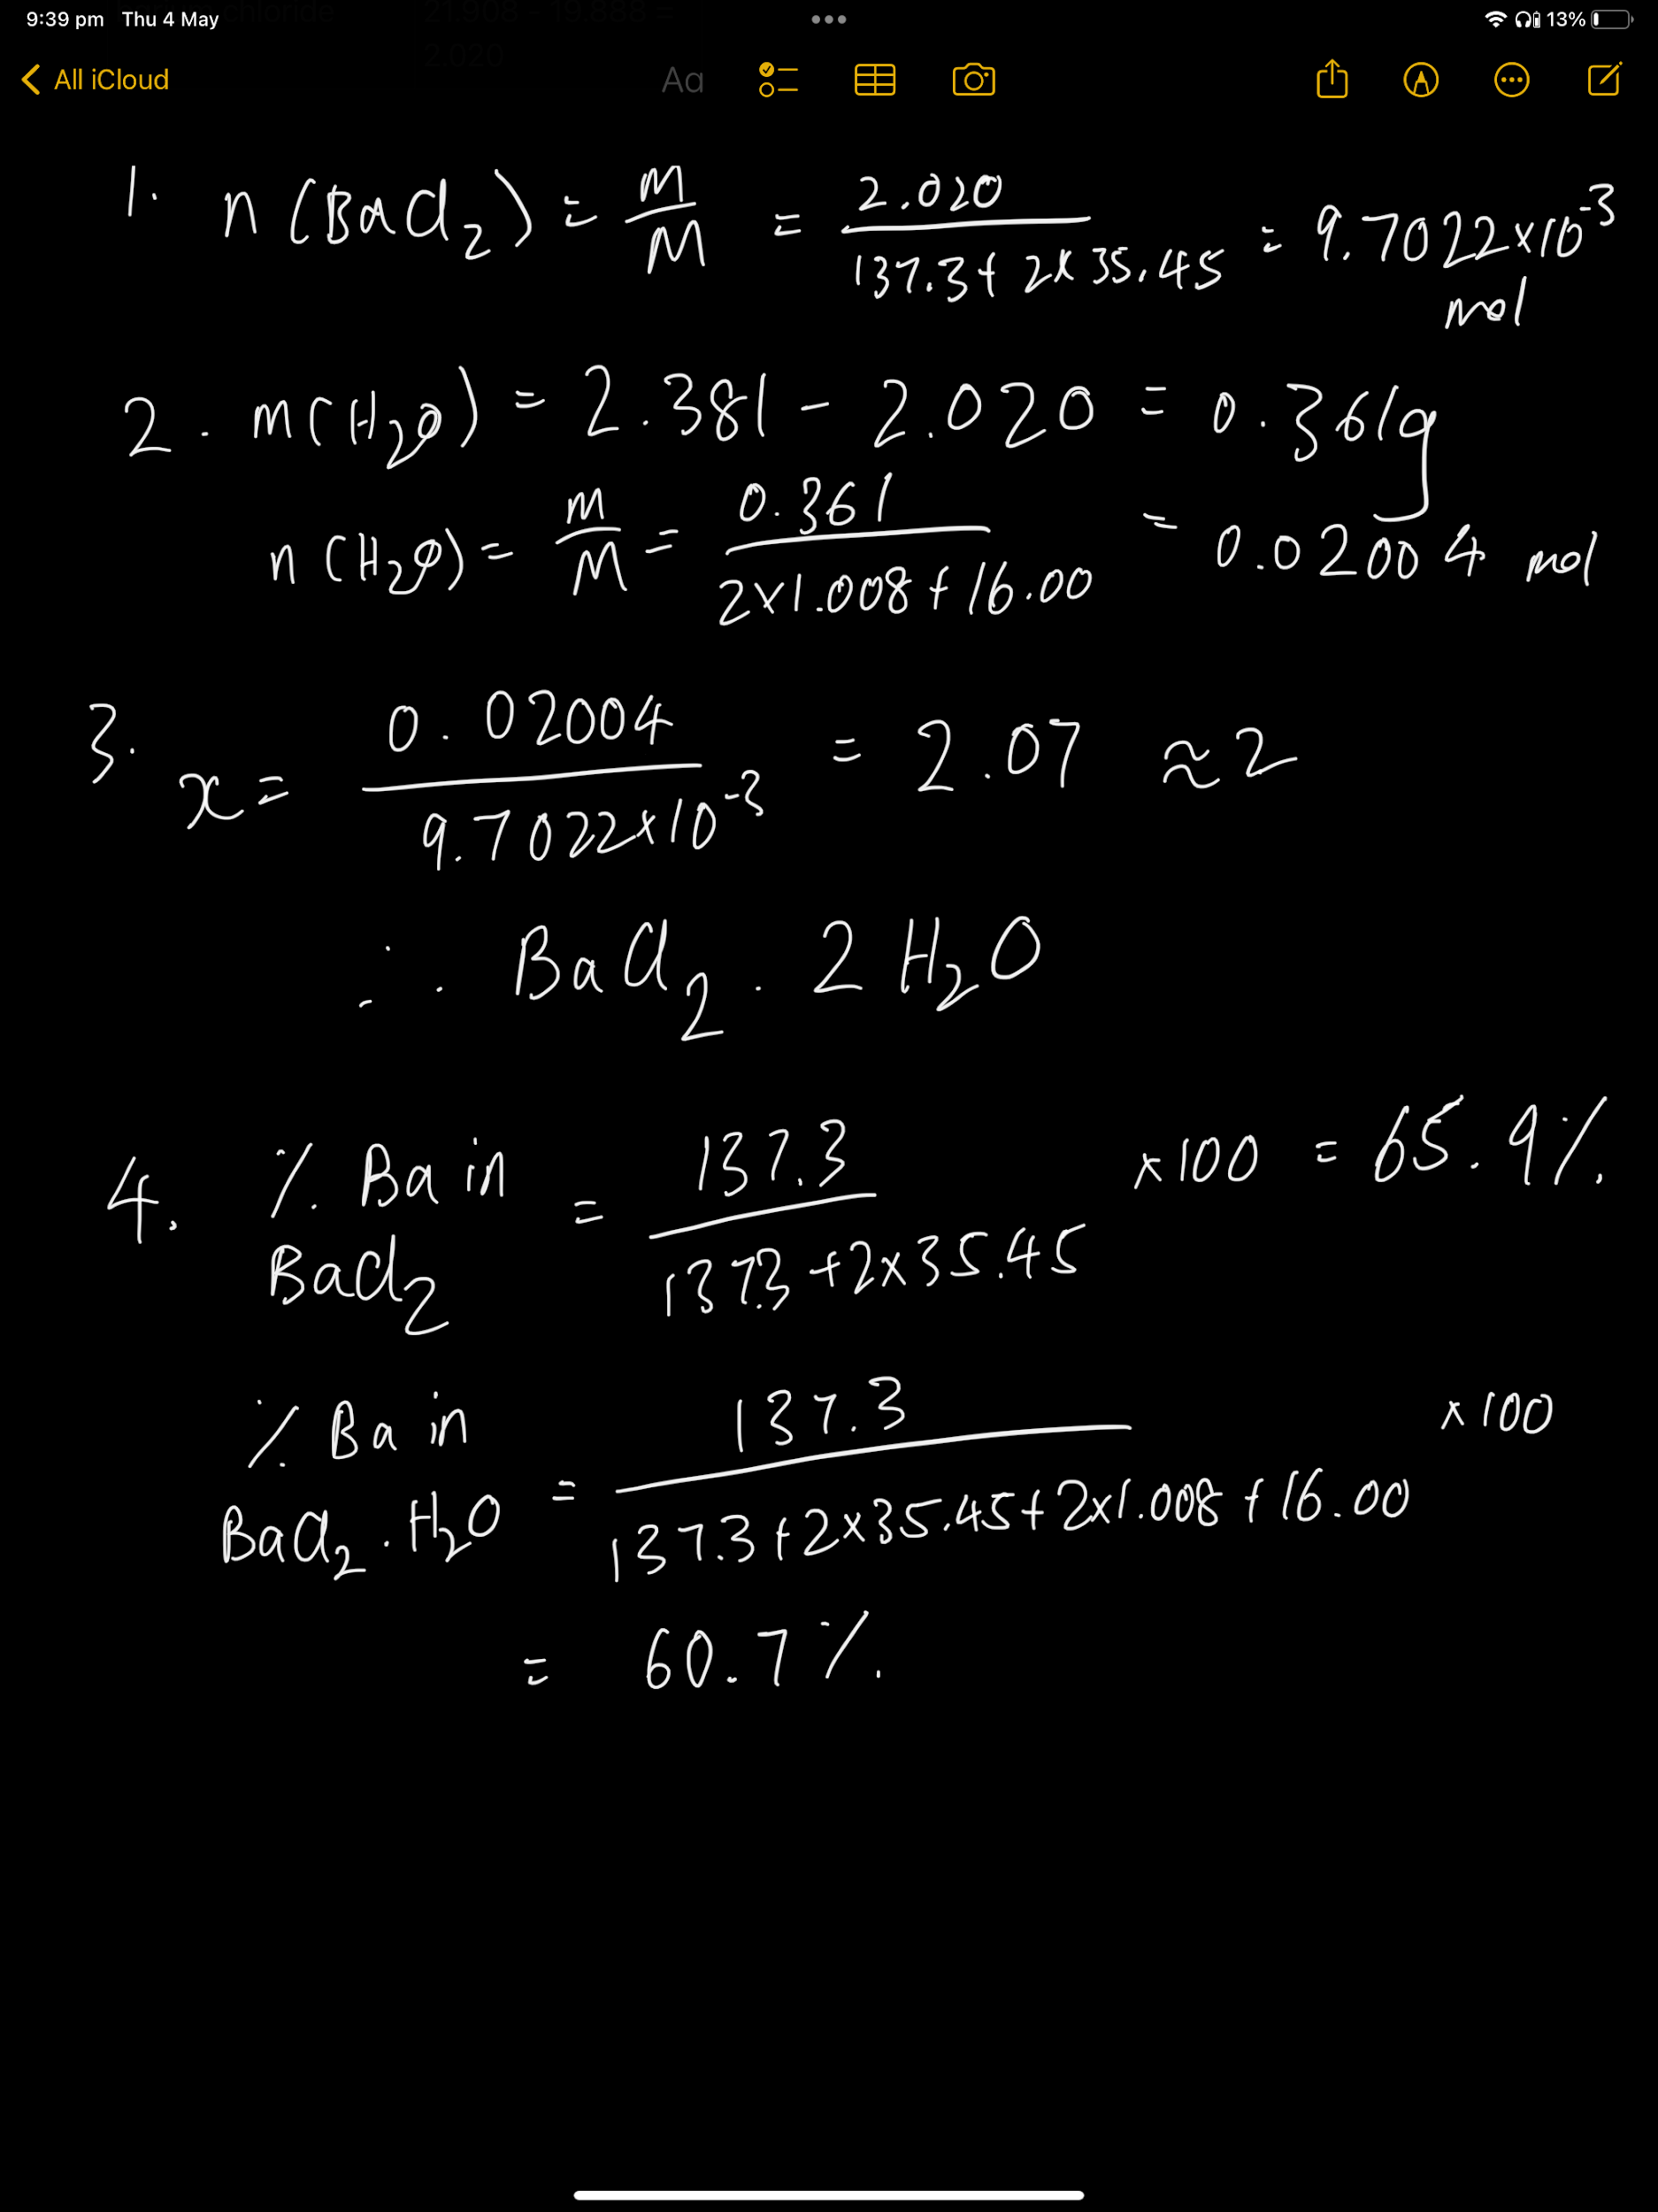 9:39 pm Thu 4 May
13%
chloride 21.908 - 19.888 =
2.020
All iCloud
Aa
1. n (BaCl₂) = m/M = 2.020/(137.3 + 2 x 35.45) = 9.7022 x 10⁻³ mol
2. m(H₂O) = 2.381 - 2.020 = 0.361g
n (H₂O) = m/M = 0.361/(2x1.008 + 16.00) = 0.02004 mol
3. x = 0.02004/(9.7022 x 10⁻³) = 2.07 ≈ 2
∴ BaCl₂ . 2 H₂O
4. % Ba in BaCl₂ = 137.3/(137.3 + 2x35.45) x100 = 65.9%
% Ba in BaCl₂ . H₂O = 137.3/(137.3 + 2x35.45 + 2x1.008 + 16.00) x100
= 60.7%